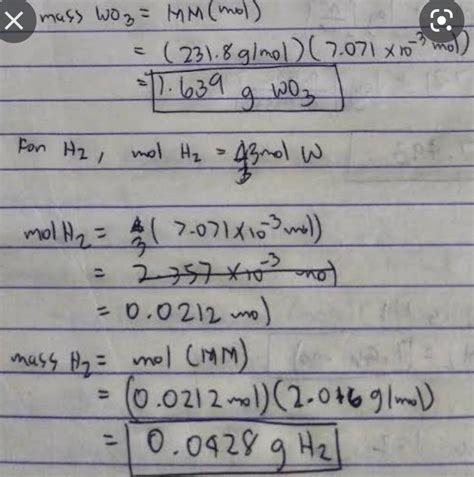 mass WO₃ = MM(mol)
= (231.8 g/mol)(7.071 × 10⁻³ mol)
= 1.639 g WO₃
For H₂, mol H₂ = 3 mol W
mol H₂ = 3 ( 7.071 × 10⁻³ mol)
= 2.357 × 10⁻³ mol
= 0.0212 mol
mass H₂ = mol (MM)
= (0.0212 mol)(2.016 g/mol)
= 0.0428 g H₂